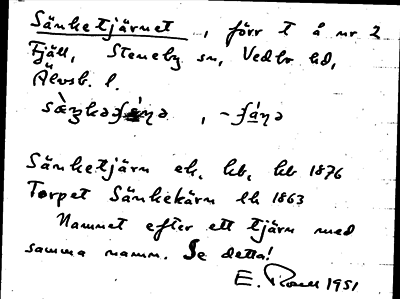 Sänketjärnet, förr t å nr 2
Fjäll, Steneby sn, Vedbo hd,
Älvsb. l.
sæ̀ŋkəʃǽɳə, -ʃǽɳə
Sänketjärn ek. kb. kb 1876
Torpet Sänkekärn lh 1863
Namnet efter ett tjärn med
samma namn. Se detta!
E. 1951